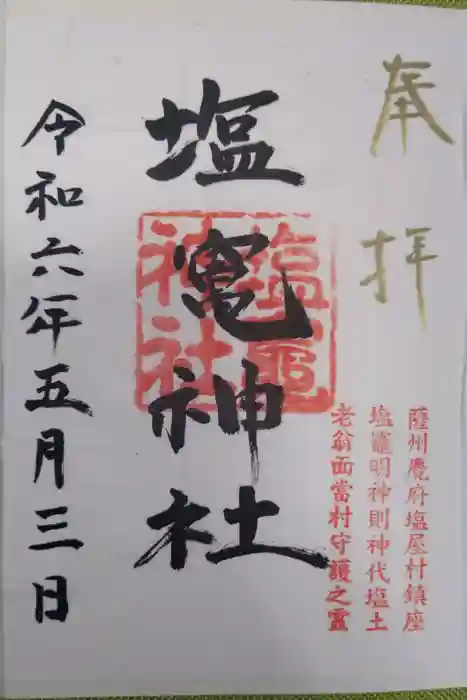 奉拝
薩州麑府塩屋村鎮座
塩竈明神則神代塩土
老翁面當村守護之霊
塩竃神社
塩竈神社
令和六年五月三日